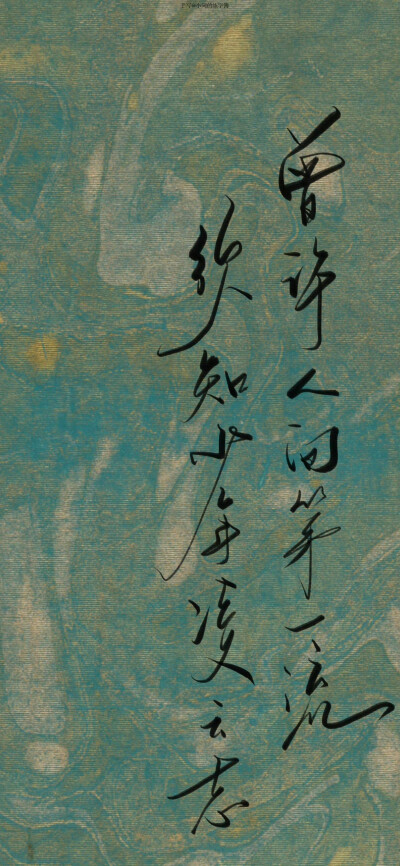 曾许人间第一流
须知少年凌云志